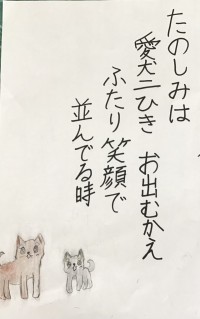 たのしみは
愛犬二ひき　お出むかえ
ふたり笑顔で
並んでる時